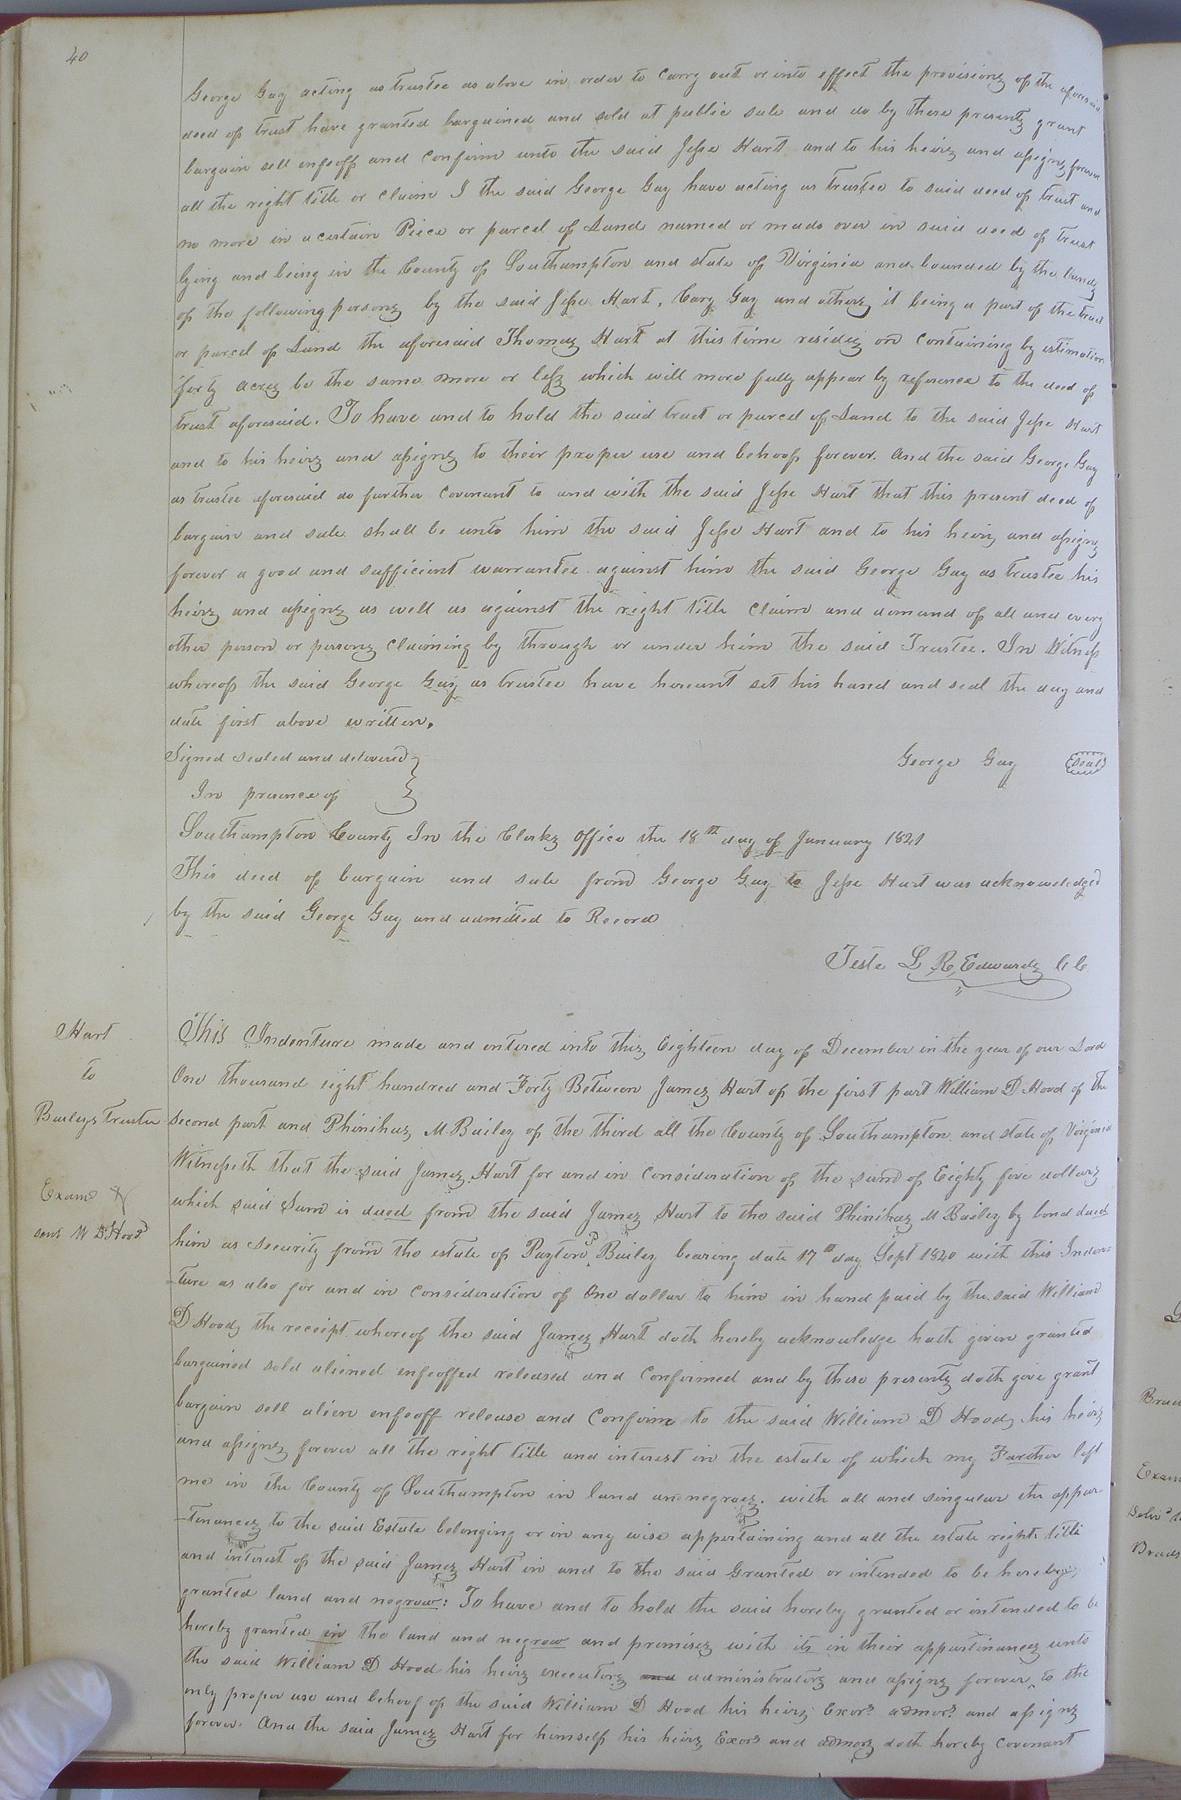 40
George Gay acting as trustee as above in order to carry out or into effect the provisions of the aforesaid
deed of trust have granted bargained and sold at public sale and do by these presents grant
bargain sell enfeoff and confirm unto the said Jesse Hart and to his heirs and assigns forever
all the right title or claim I the said George Gay have acting as trustee to said deed of trust and
no more in a certain Piece or parcel of Land named or made over in said deed of trust
lying and being in the County of Southampton and state of Virginia and bounded by the lands
of the following persons by the said Jesse Hart, Cary Gay and others it being a part of the tract
or parcel of Land the aforesaid Thomas Hart at this time resides on containing by estimation
forty acres be the same more or less which will more fully appear by reference to the deed of
trust aforesaid. To have and to hold the said tract or parcel of Land to the said Jesse Hart
and to his heirs and assigns to their proper use and behoof forever. And the said George Gay
as trustee aforesaid do further covenant to and with the said Jesse Hart that this present deed of
bargain and sale shall be unto him the said Jesse Hart and to his heirs and assigns
forever a good and sufficient warrantee against him the said George Gay as trustee his
heirs and assigns as well as against the right title claim and demand of all and every
other person or persons claiming by through or under him the said Trustee. In Witness
whereof the said George Gay as trustee have hereunt set his hand and seal the day and
date first above written.
Signed sealed and delivered George Gay (Seal)
In presence of
Southampton County In the Clerks Office the 18th day of January 1841
This deed of bargain and sale from George Gay to Jesse Hart was acknowledged
by the said George Gay and admitted to Record
Teste L R Edwards C C
Hart
to
Baileys Trustee
Examd
sent W D Hood
This Indenture made and entered into this Eighteen day of December in the year of our Lord
One thousand eight hundred and Forty Between James Hart of the first part William D Hood of the
second part and Phinihas M Bailey of the third all the County of Southampton and state of Virginia
Witnesseth that the said James Hart for and in consideration of the sum of Eighty five dollars
which said Sum is dued from the said James Hart to the said Phinihas M Bailey by bond dued
him as security from the estate of Payton P Bailey bearing date 17th day Sept 1840 with this Inden-
-ture as also for and in consideration of One dollar to him in hand paid by the said William
D Hood, the receipt whereof the said James Hart doth hereby acknowledge hath given granted
bargained sold aliened enfeoffed released and confirmed and by these presents doth give grant
bargain sell alien enfeoff release and Confirm to the said William D Hood, his heirs
and assigns forever all the right title and interest in the estate of which my Farther left
me in the County of Southampton in land an negroes. with all and singular the appur-
-tinances to the said Estate belonging or in any wise appertaining and all the estate right title
and interest of the said James Hart in and to the said Granted or intended to be hereby
granted land and negrow: To have and to hold the said hereby granted or intended to be
hereby granted in the land and negrow and premises with its in their appurtinances unto
the said William D Hood his heirs executors and administrators and assigns forever, to the
only proper use and behoof of the said William D Hood his heirs Exors admors and assigns
forever. And the said James Hart for himself his heirs Exors and admors doth hereby covenant